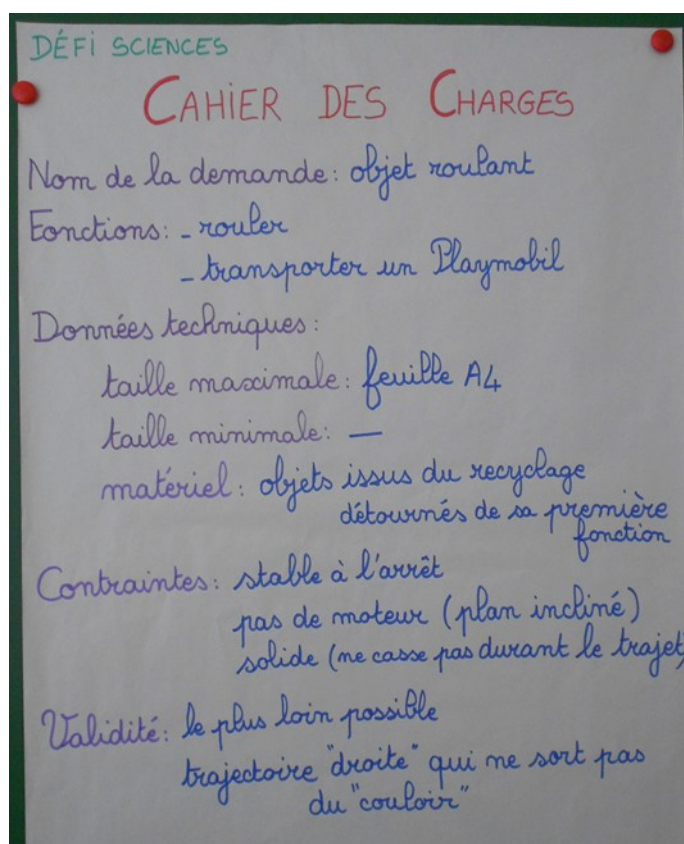 DÉFI SCIENCES
CAHIER DES CHARGES
Nom de la demande: objet roulant
Fonctions: - rouler
- transporter un Playmobil
Données techniques:
taille maximale: feuille A4
taille minimale: —
matériel: objets issus du recyclage
détournés de sa première
fonction
Contraintes: stable à l'arrêt
pas de moteur (plan incliné)
solide (ne casse pas durant le trajet)
Validité: le plus loin possible
trajectoire "droite" qui ne sort pas
du "couloir"